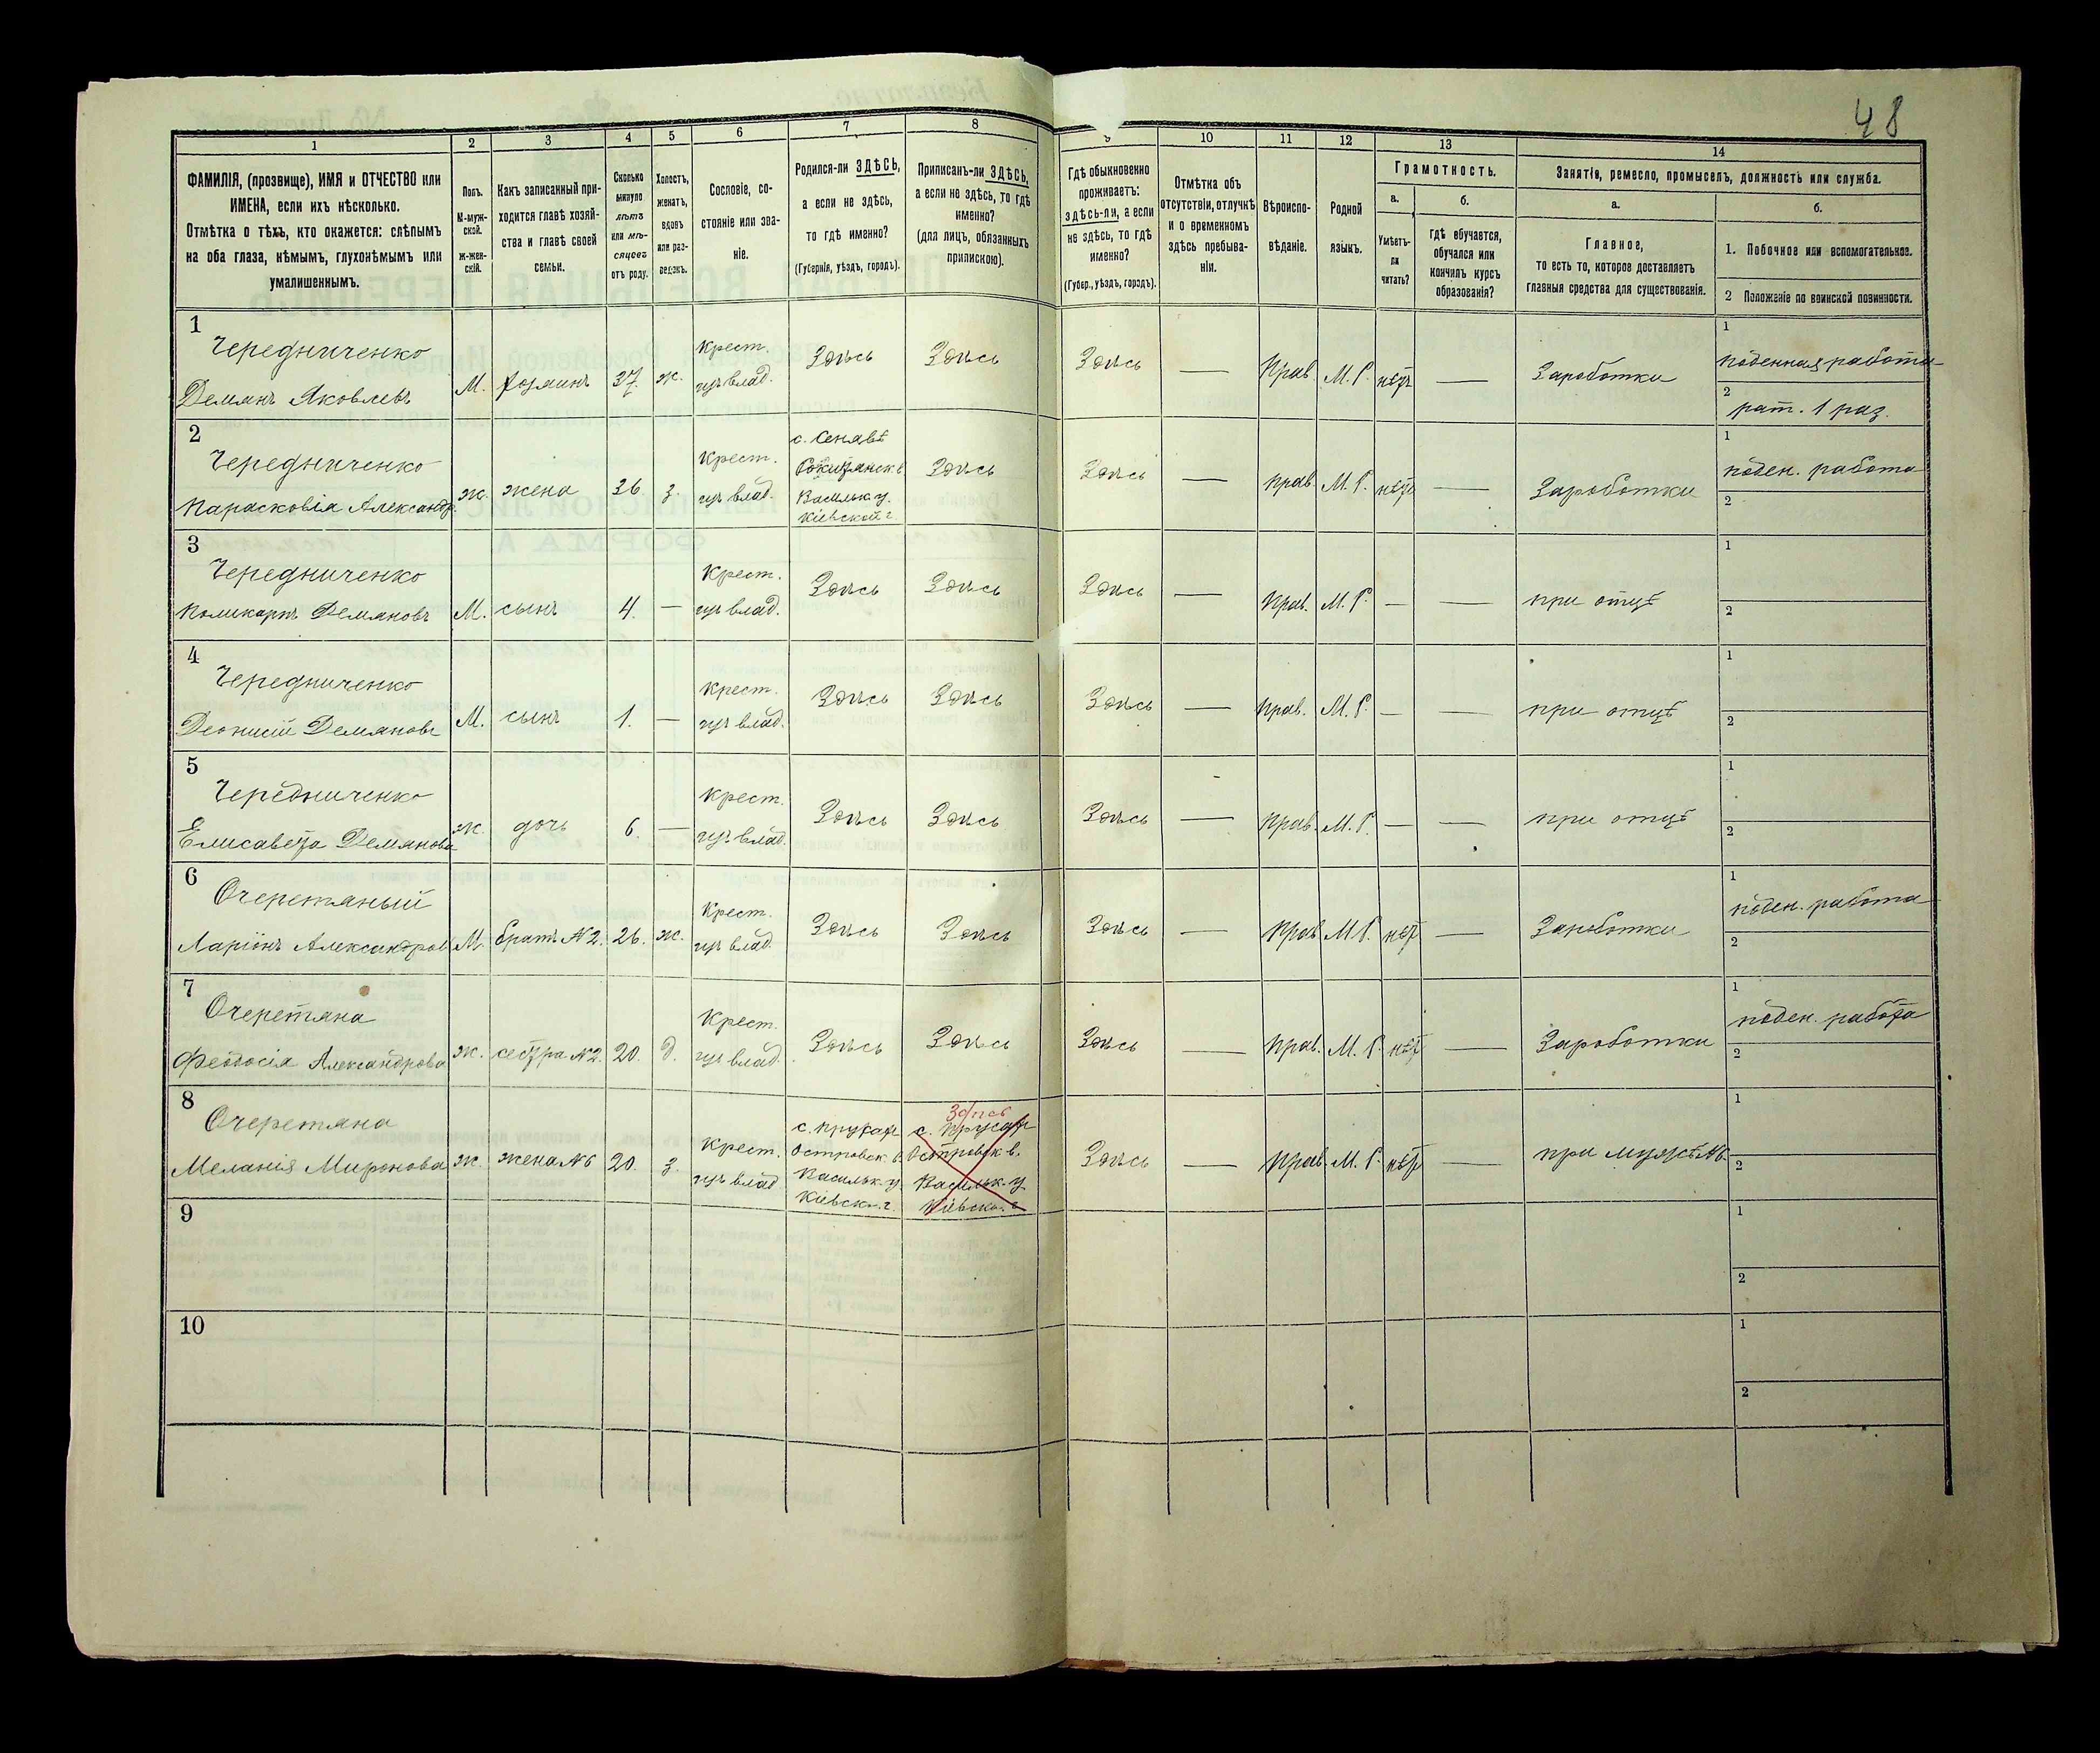 48
1 2 3 4 5 6 7 8 9 10 11 12 13 14
ФАМИЛІЯ, (прозвище), ИМЯ и ОТЧЕСТВО или
ИМЕНА, если ихъ нѣсколько.
Отмѣтка о тѣхъ, кто окажется: слѣпымъ
на оба глаза, нѣмымъ, глухонѣмымъ или
умалишеннымъ.
Полъ.
М-муж-
ской.
ж-жен-
скій.
Какъ записанный при-
ходится главѣ хозяй-
ства и главѣ своей
семьи.
Сколько
минуло
лѣтъ
или мѣ-
сяцевъ
отъ роду.
Холостъ,
женатъ,
вдовъ
или раз-
веденъ.
Сословіе, со-
стояніе или зва-
ніе.
Родился-ли ЗДѢСЬ,
а если не здѣсь,
то гдѣ именно?
(Губернія, уѣздъ, городъ).
Приписанъ-ли ЗДѢСЬ,
а если не здѣсь, то гдѣ
именно?
(для лицъ, обязанныхъ
припискою).
Гдѣ обыкновенно
проживаетъ:
здѣсь-ли, а если
не здѣсь, то гдѣ
именно?
(Губер., уѣздъ, городъ).
Отмѣтка объ
отсутствіи, отлучкѣ
и о временномъ
здѣсь пребыва-
ніи.
Вѣроиспо-
вѣданіе.
Родной
языкъ.
Грамотность.
а.
Умѣетъ-
ли
читать?
б.
гдѣ обучается,
обучался или
кончилъ курсъ
образованія?
Занятіе, ремесло, промыселъ, должность или служба.
а.
Главное,
то есть то, которое доставляетъ
главныя средства для существованія.
б.
1. Побочное или вспомогательное.
2 Положеніе по воинской повинности.
1
Чередниченко
Демянъ Яковлевъ
М. хозяинъ 37 ж.
Крест.
изъ влад.
Здѣсь Здѣсь Здѣсь — Прав. М. Р. нѣтъ — Заработки
1 поденная работа
2 рат. 1 раз.
2
Чередниченко
Парасковія Александр.
ж. жена 36 з.
Крест.
изъ влад.
Васильк. у.
Кіевской г.
Здѣсь Здѣсь — Прав. М. Р. нѣтъ — Зароботки
1 поден. работа
2
3
Чередниченко
Поликарпъ Демяновъ
М. сынъ 4. —
Крест.
изъ влад.
Здѣсь Здѣсь Здѣсь — Прав. М. Р. — — при отцѣ
1
2
4
Чередниченко
Деонисій Демяновъ
М. сынъ 1. —
Крест.
изъ влад.
Здѣсь Здѣсь Здѣсь — Прав. М. Р. — — при отцѣ
1
2
5
Чередниченко
Елисавета Демянова
ж. дочь 6. —
Крест.
изъ влад.
Здѣсь Здѣсь Здѣсь — Прав. М. Р. — — при отцѣ
1
2
6
Очеретяный
Ларіонъ Александров
М. братъ №2. 26. ж.
Крест.
изъ влад.
Здѣсь Здѣсь Здѣсь — Прав. М. Р. нѣт — Зароботки
1 поден. работа
2
7
Очеретяна
Феодосія Александрова
ж. сестра №2. 20. д.
Крест.
изъ влад.
Здѣсь Здѣсь Здѣсь — Прав. М. Р. нѣт — Зароботки
1 поден. работа
2
8
Очеретяна
Меланія Миронова
ж. жена №6 20. з.
Крест.
изъ влад.
с. Прусы
Островск. в.
Васильк. у.
Кіевск. г.
Здѣсь
с. Прусы
Островск в.
Васильк. у
Кіевск. г
Здѣсь — Прав. М. Р. нѣт — при мужѣ №6.
1
2
9
1
2
10
1
2